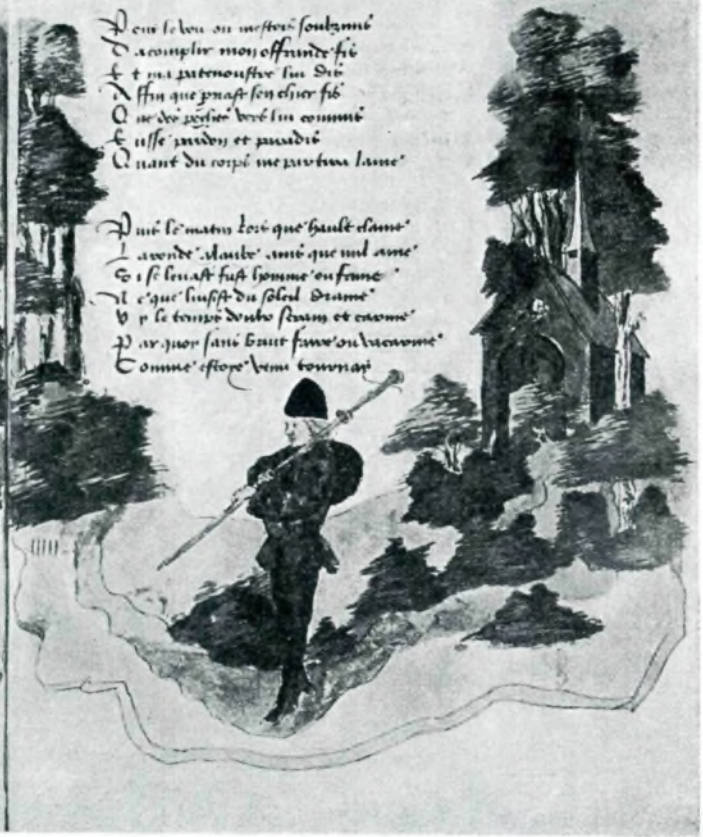 Pour le veu ou mestoie soubzmis
Dacomplir mon offrande fis
Et ma patenostre lui dis
Affin que priast son chier fis
Que des pechiez vers lui commis
Eusse pardon et paradis
Quant du corps me partira lame

Puis le matin lors que hault clame
Laronde alaube ains que nul ame
Si se levast fust homme ou femme
Ne que luisist du soleil drame
Vy le temps doulx serain et carme
Par quoy sans bruit faire ou vacarme
Comme estoye venu tournay